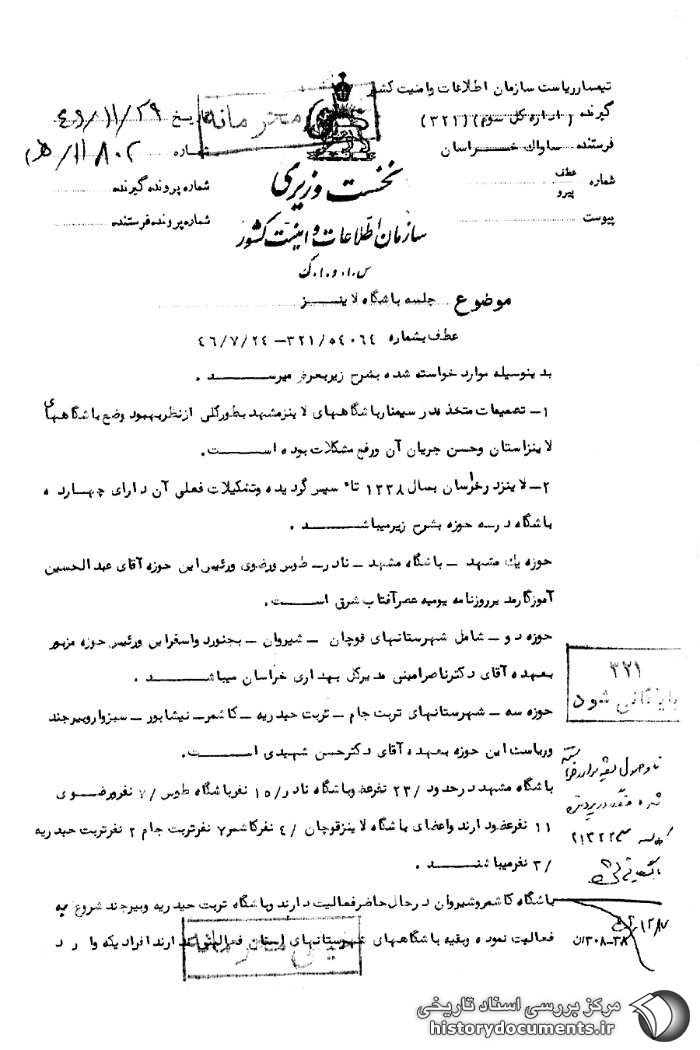 تیمسار ریاست سازمان اطلاعات و امنیت کشور
گیرنده (اداره کل سوم) (۳۲۱)
فرستنده ساواک خراسان
شماره عطف پیرو
پیوست
محرمانه
تاریخ ۴۶/۱۱/۲۹
شماره ۱۱۸۰۲/
شماره پرونده گیرنده
شماره پرونده فرستنده
نخست وزیری
سازمان اطلاعات و امنیت کشور
س.ا.و.ا.ک
موضوع جلسه باشگاه لاینز
عطف بشماره ۳۲۱/۵۴۰۶۴ – ۴۶/۷/۲۴
بدینوسیله موارد خواسته شده بشرح زیر بعرض میرسد .
۱– تصمیمات متخذه در سیمنار باشگاههای لاینز مشهد بطور کلی از نظر بهبود وضع باشگاههای
لاینز استان و حسن جریان آن و رفع مشکلات بوده است.
۲– لاینز در خراسان بسال ۱۳۳۸ تاسیس گردیده و تشکیلات فعلی آن دارای چهارده
باشگاه در سه حوزه بشرح زیر میباشد .
حوزه یک مشهد – باشگاه مشهد – نادر – طوس و رضوی و رئیس این حوزه آقای عبدالحسین
آموزگار مدیر روزنامه یومیه عصر آفتاب شرق است.
حوزه دو – شامل شهرستانهای قوچان – شیروان – بجنورد و اسفراین و رئیس حوزه مزبور
بعهده آقای دکتر ناصر امینی مدیر کل بهداری خراسان میباشد .
حوزه سه – شهرستانهای تربت جام – تربت حیدریه – کاشمر – نیشابور – سبزوار و بیرجند
و ریاست این حوزه بعهده آقای دکتر حسن شهیدی است.
باشگاه مشهد در حدود /۲۳ نفر عضو باشگاه نادر /۱۵ نفر باشگاه طوس /۷ نفر و رضوی
۱۱ نفر عضو دارند و اعضای باشگاه لاینز قوچان /۴ نفر کاشمر ۷ نفر تربت جام ۲ نفر تربت حیدریه
/۳ نفر میباشند .
باشگاه کاشمر و شیروان در حال حاضر فعالیت دارند و باشگاه تربت حیدریه و بیرجند شروع به
فعالیت نموده و بقیه باشگاههای شهرستانهای استان فعالیتی ندارند افرادیکه وارد
۳۲۱
بایگانی شود
مرکز بررسی اسناد تاریخی
historydocuments.ir